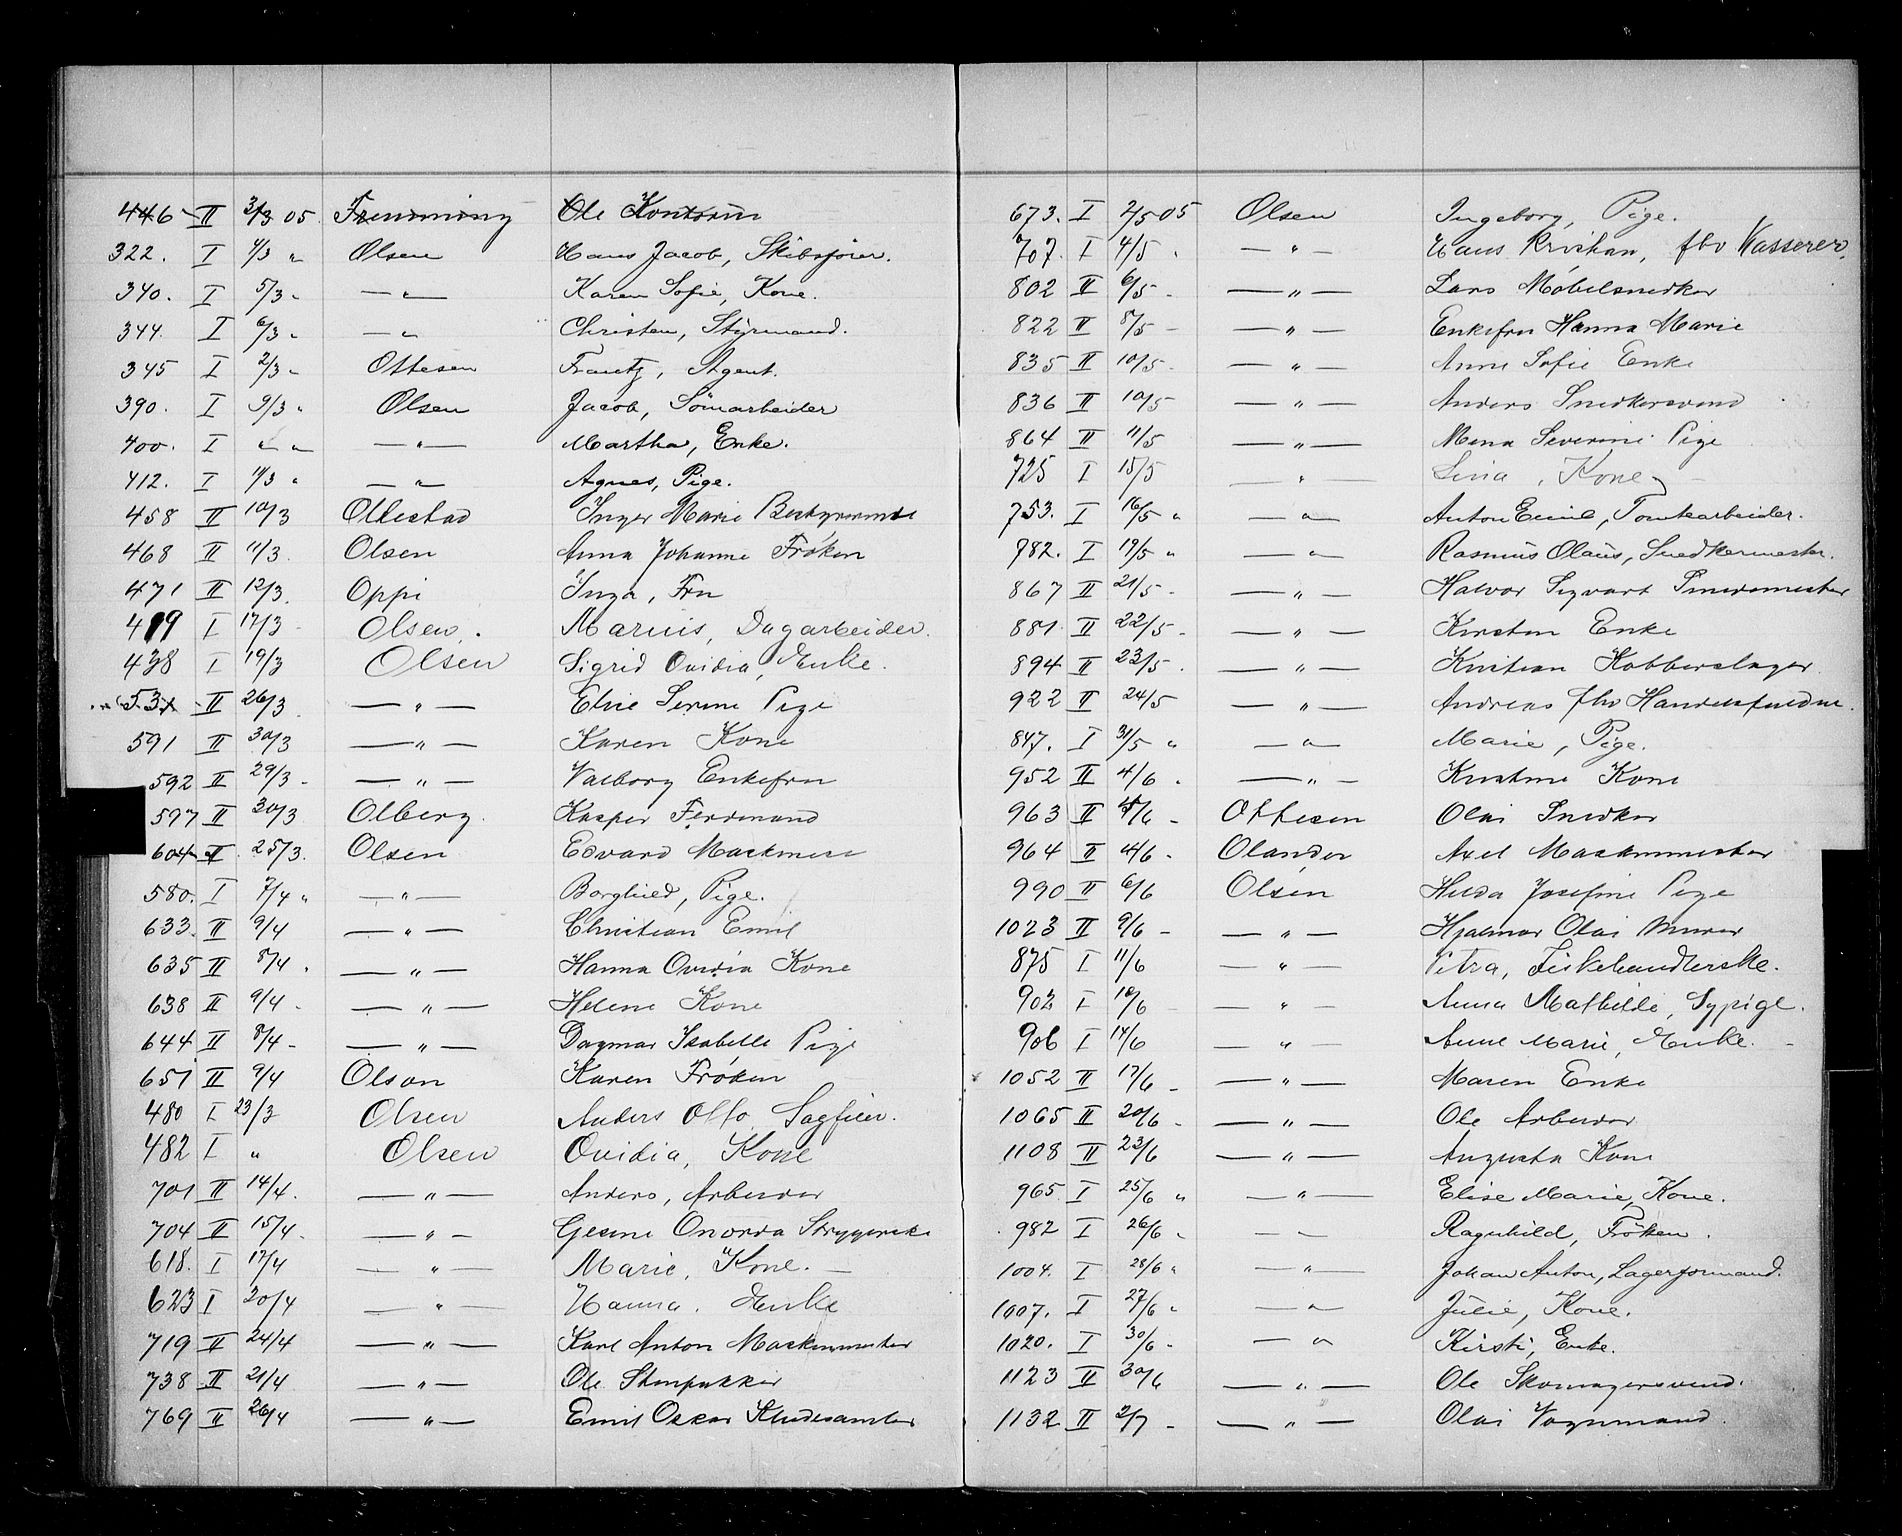 446 II 3/3 05. Fremming Ole Kontorm
322. I 4/3 " Olsen Hans Jacob, Skibsfører.
340. I 5/3 " — " — Karen Sofie, Kone.
344. I 6/3 " — " Christen, Styrmand.
345 I 2/3 " Ottesen Frantz, Agent.
390. I 9/3 " Olsen Jacob, Sömarbeider
400. I " " — " — Martha, Enke.
412. I 11/3 " — " — Agnes, Pige.
458 II 10/3 Ottestad Inger Marie Bestyrerinde
468 II 11/3. Olsen Anna Johanne Frøken
471 II 12/3. Oppi Inga, Fru
419 I 17/3 - Olsen. Marius, Dagarbeider.
438 I 19/3 Olsen Sigrid Ovidia, Enke.
53 II 26/3 — " — Elise Serine Pige
591 II 30/3 — " — Karen Kone
592 II 29/3 - — " — Valborg Enkefru
597 II 30/3 Olberg. Kasper Ferdinand
604 II 25/3. Olsen Edvard Maskinist
580. I 7/4 " — " — Borghild, Pige.
633. II 9/4 — " — Christian Emil
635 II 8/4. — " — Hanna Ovidia Kone
638 II 9/4 - — " — Helene Kone
644 II 8/4 - — " — Dagmar Isabelle Pige
651 II 9/4 Olson Karen Frøken
480 I 23/3 Olsen Anders Otto Sagfiler.
482 I " Olsen Ovidia, Kone
701 II 14/4. — " — Anders, Arbeider
704 II 15/4. — " — Gesine Onorda Strygerske
618. I 17/4 — " — Marie, Kone. —
623 I 20/4 — " — Hanna. Enke
719 II 24/4 — " — Karl Anton Maskinmester
738 II 21/4 — " — Ole Stenpukker
769 II 26/4 — " — Emil Oskar Kludesamler
673. I 2/5 05 Olsen Ingeborg, Pige.
707. I 4/5 " — " — Hans Kristian, fhv Vasserer.
802 II 6/5 - — " — Lars Møbelsnedker
822 II 8/5 - — " — Enkefru Hanna Marie
835 II 10/5 - — " — Anne Sofie Enke
836 II 10/5 — " — Anders Snedkersvend
864 II 11/5 — " — Mena Severine Pige
725 I 15/5 — " — Lina, Kone, —
753. I 16/5 " — " — Anton Emil, Tomtearbeider.
782. I 19/5 " — " — Rasmus Olaus, Snedkermester.
867 II 21/5 - — " — Halvor Sigvart Smedmester
881 II 22/5 - — " — Kirsten Enke
894 II 23/5. — " — Kristian Kobberslager
922 II 24/5 — " — Andreas fhv Handelsfuldm.
847. I 31/5 " — " — Marie, Pige.
952 II 4/6. — " — Kristine Kone
963 II 4/6 - Ottesen Olai Snedker
964 II 4/6. Olander Axel Maskinmester
990 II 6/6 Olsen Hilda Josefine Pige
1023 II 9/6 - — " — Hjalmar Olai Murer
875 I 11/6 — " — Petra, Fiskehandlerske.
902 I 10/6 — " Anna Mathilde, Sypige.
906 I 14/6 — " — Anne Marie, Enke. -
1052 II 17/6 - — " — Maren Enke
1065 II 20/6 - — " — Ole Arbeider
1108 II 23/6 — " — Augusta Kone
965. I 25/6 " — " — Elise Marie, Kone.
982 I 26/6 " — " — Ragnhild, Frøken.
1004. I 28/6 " — " — Johan Anton, Lagerformand.
1007. I 27/6 " — " — Julie, Kone.
1020. I 30/6 - — " Kirsti, Enke.
1123 II 30/6 — " — Ole Skomagersvend.
1132 II 2/7 - — " — Olai Vognmand